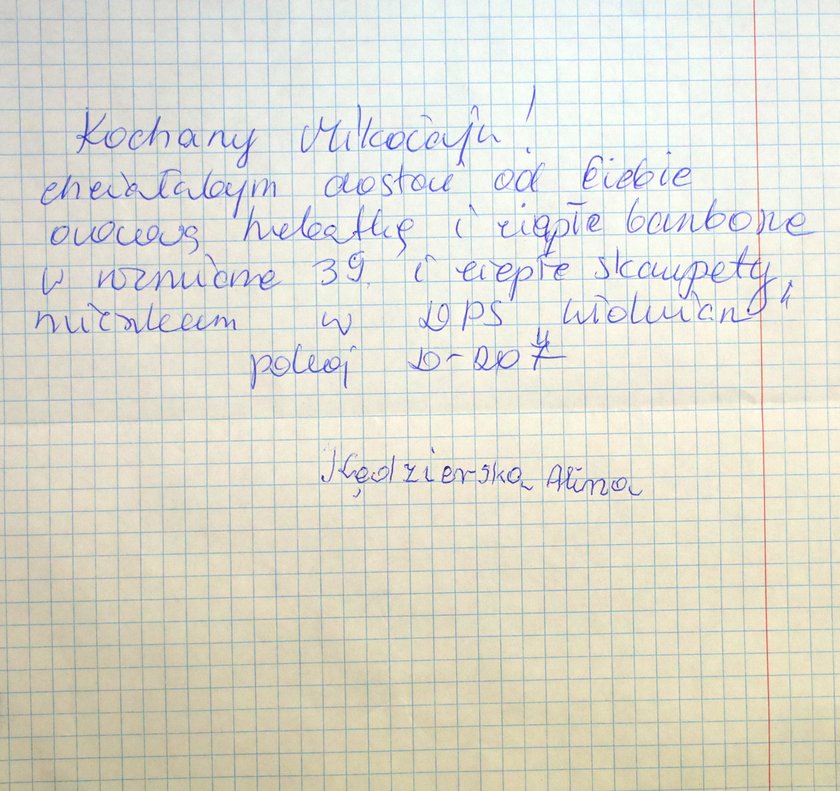 Kochany Mikołaju!
chciałabym dostać od Ciebie
owocową herbatkę i ciepłe banbone
w rozmiarze 39. i ciepłe skarpety
mieszkam w DPS
pokój D-207
Kędzierska Alina